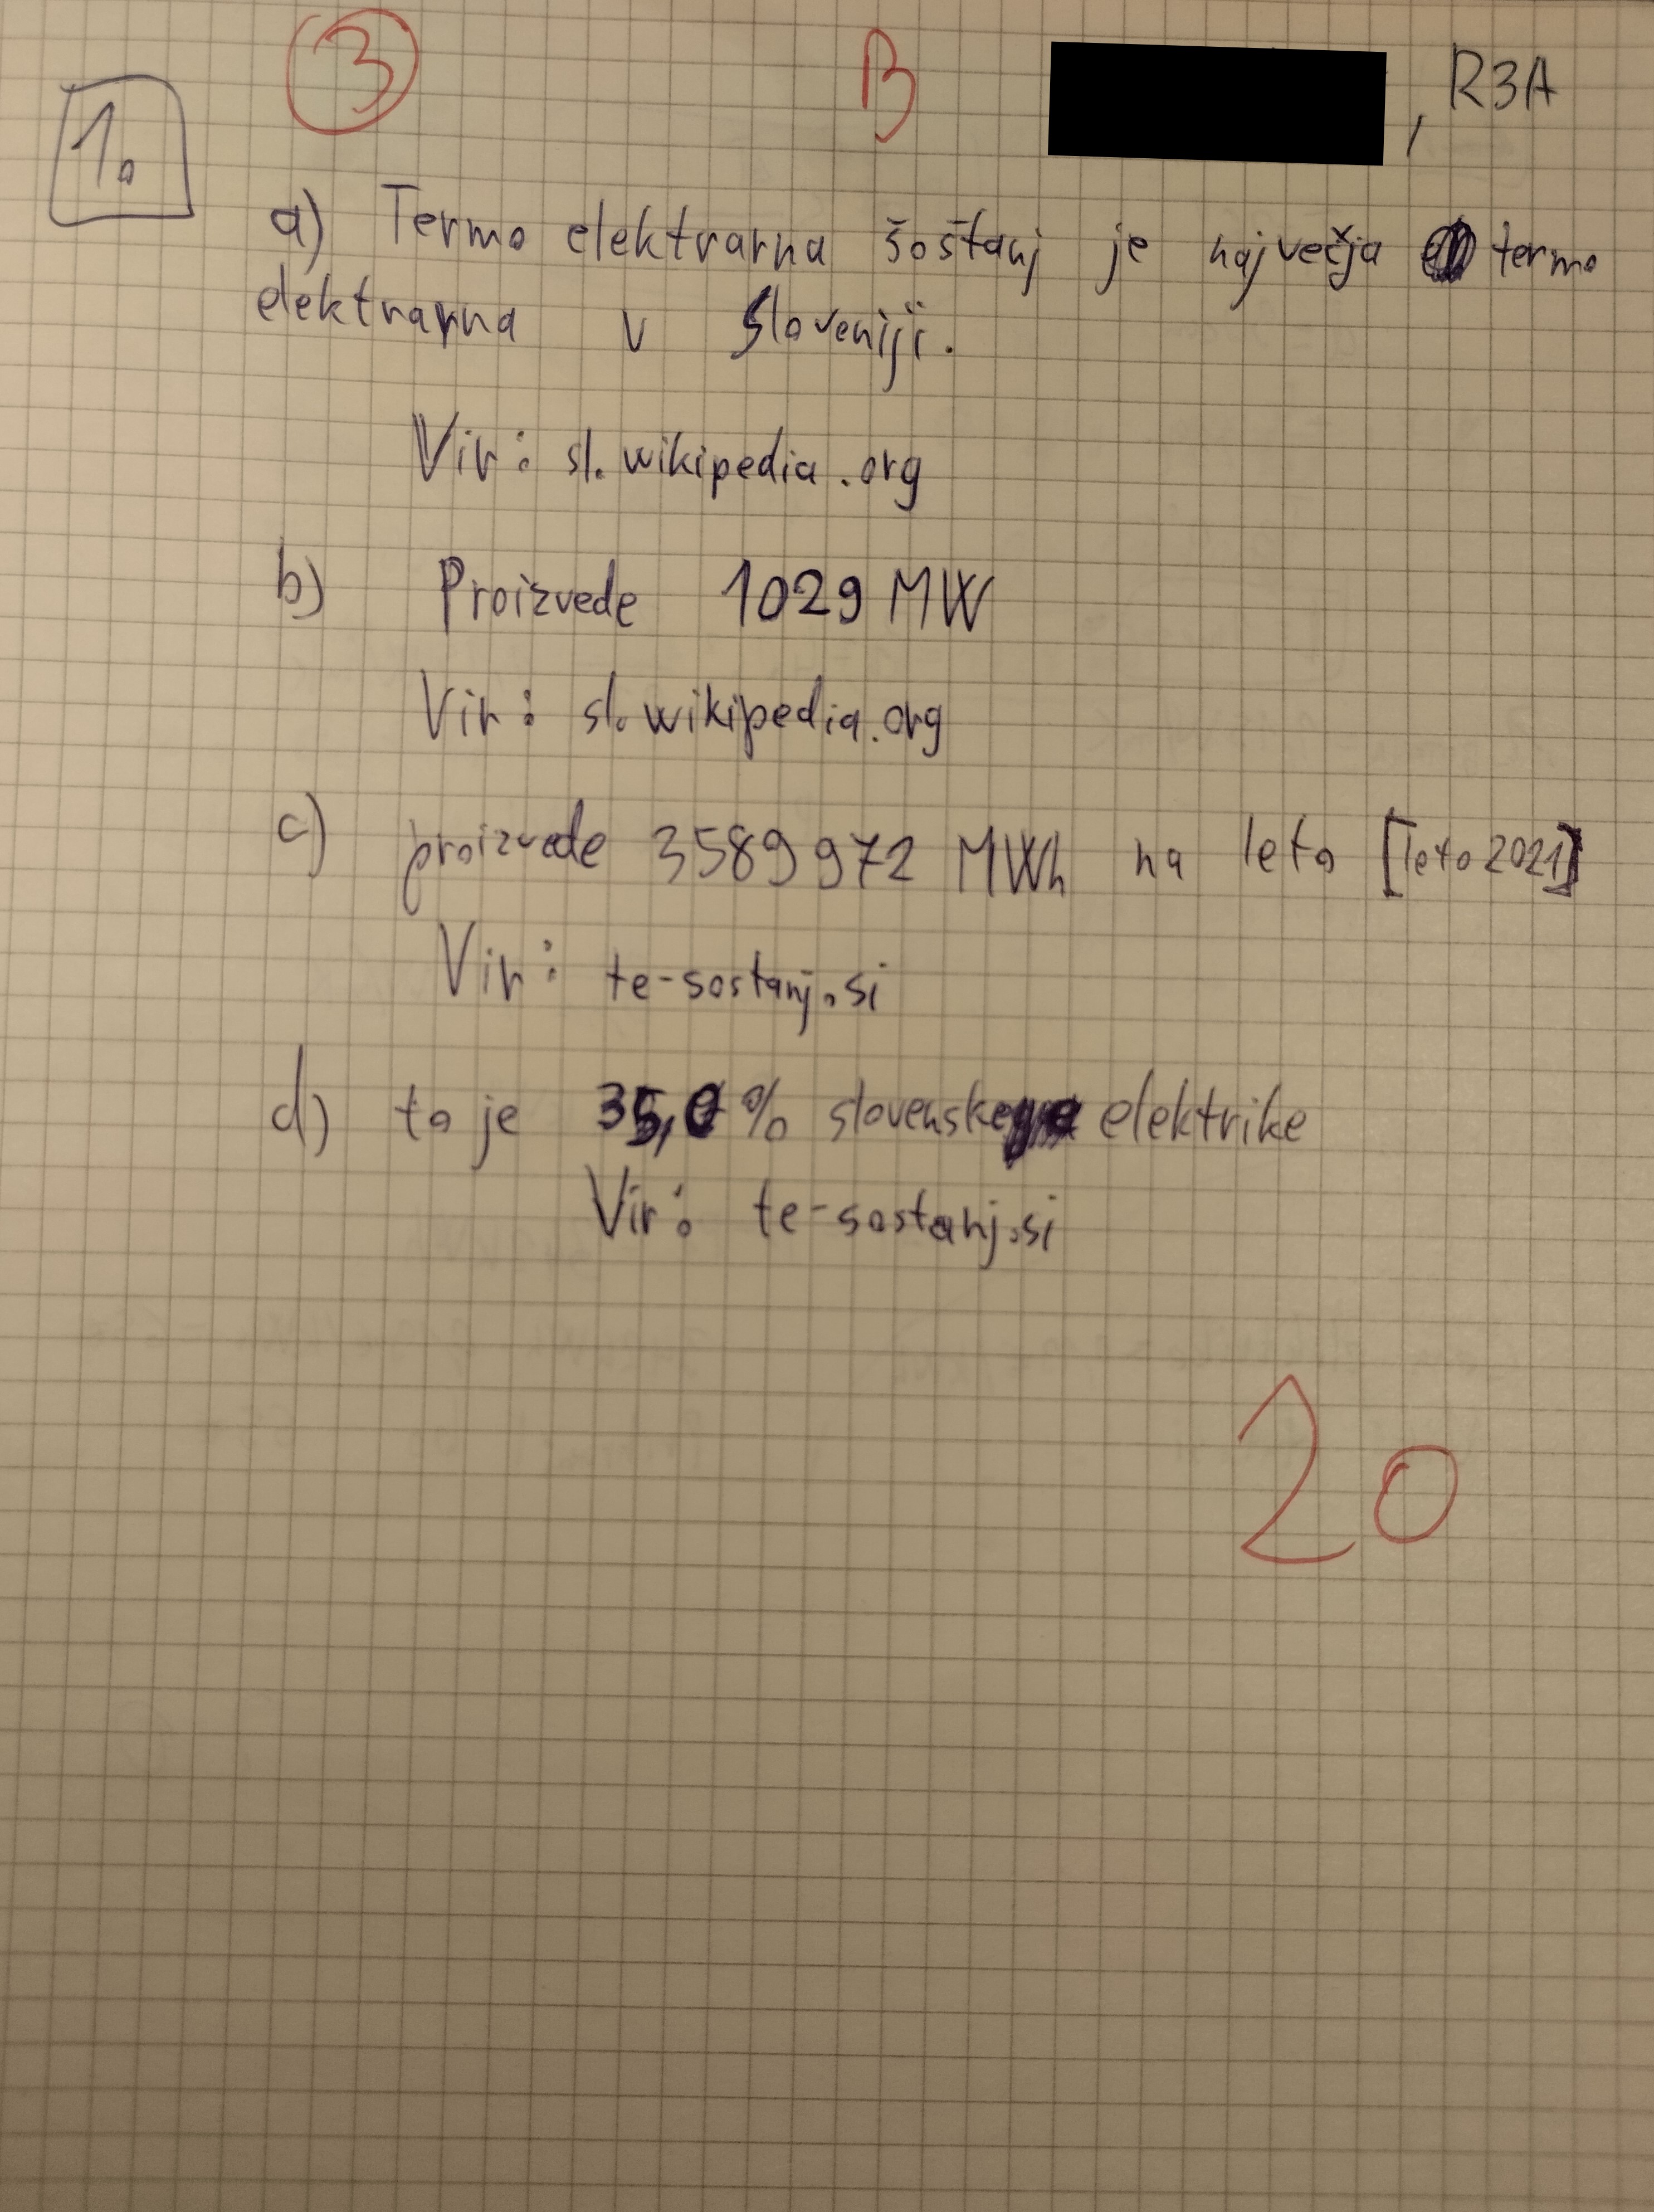 3 B , R3A
1.
a) Termo elektrarna šoštanj je največja termo
elektrarna v Sloveniji.
Vir: sl.wikipedia.org
b) Proizvede 1029 MW
Vir: sl.wikipedia.org
c) proizvede 3589972 MWh na leto [leto 2021]
Vir: te-sostanj.si
d) to je % slovenske elektrike
Vir: te-sostanj.si
20